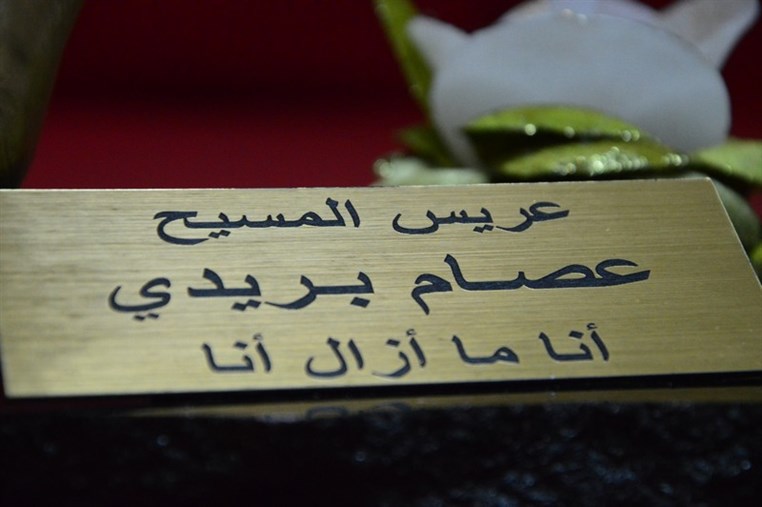 عريس المسيح
عصام بريدي
أنا ما أزال أنا